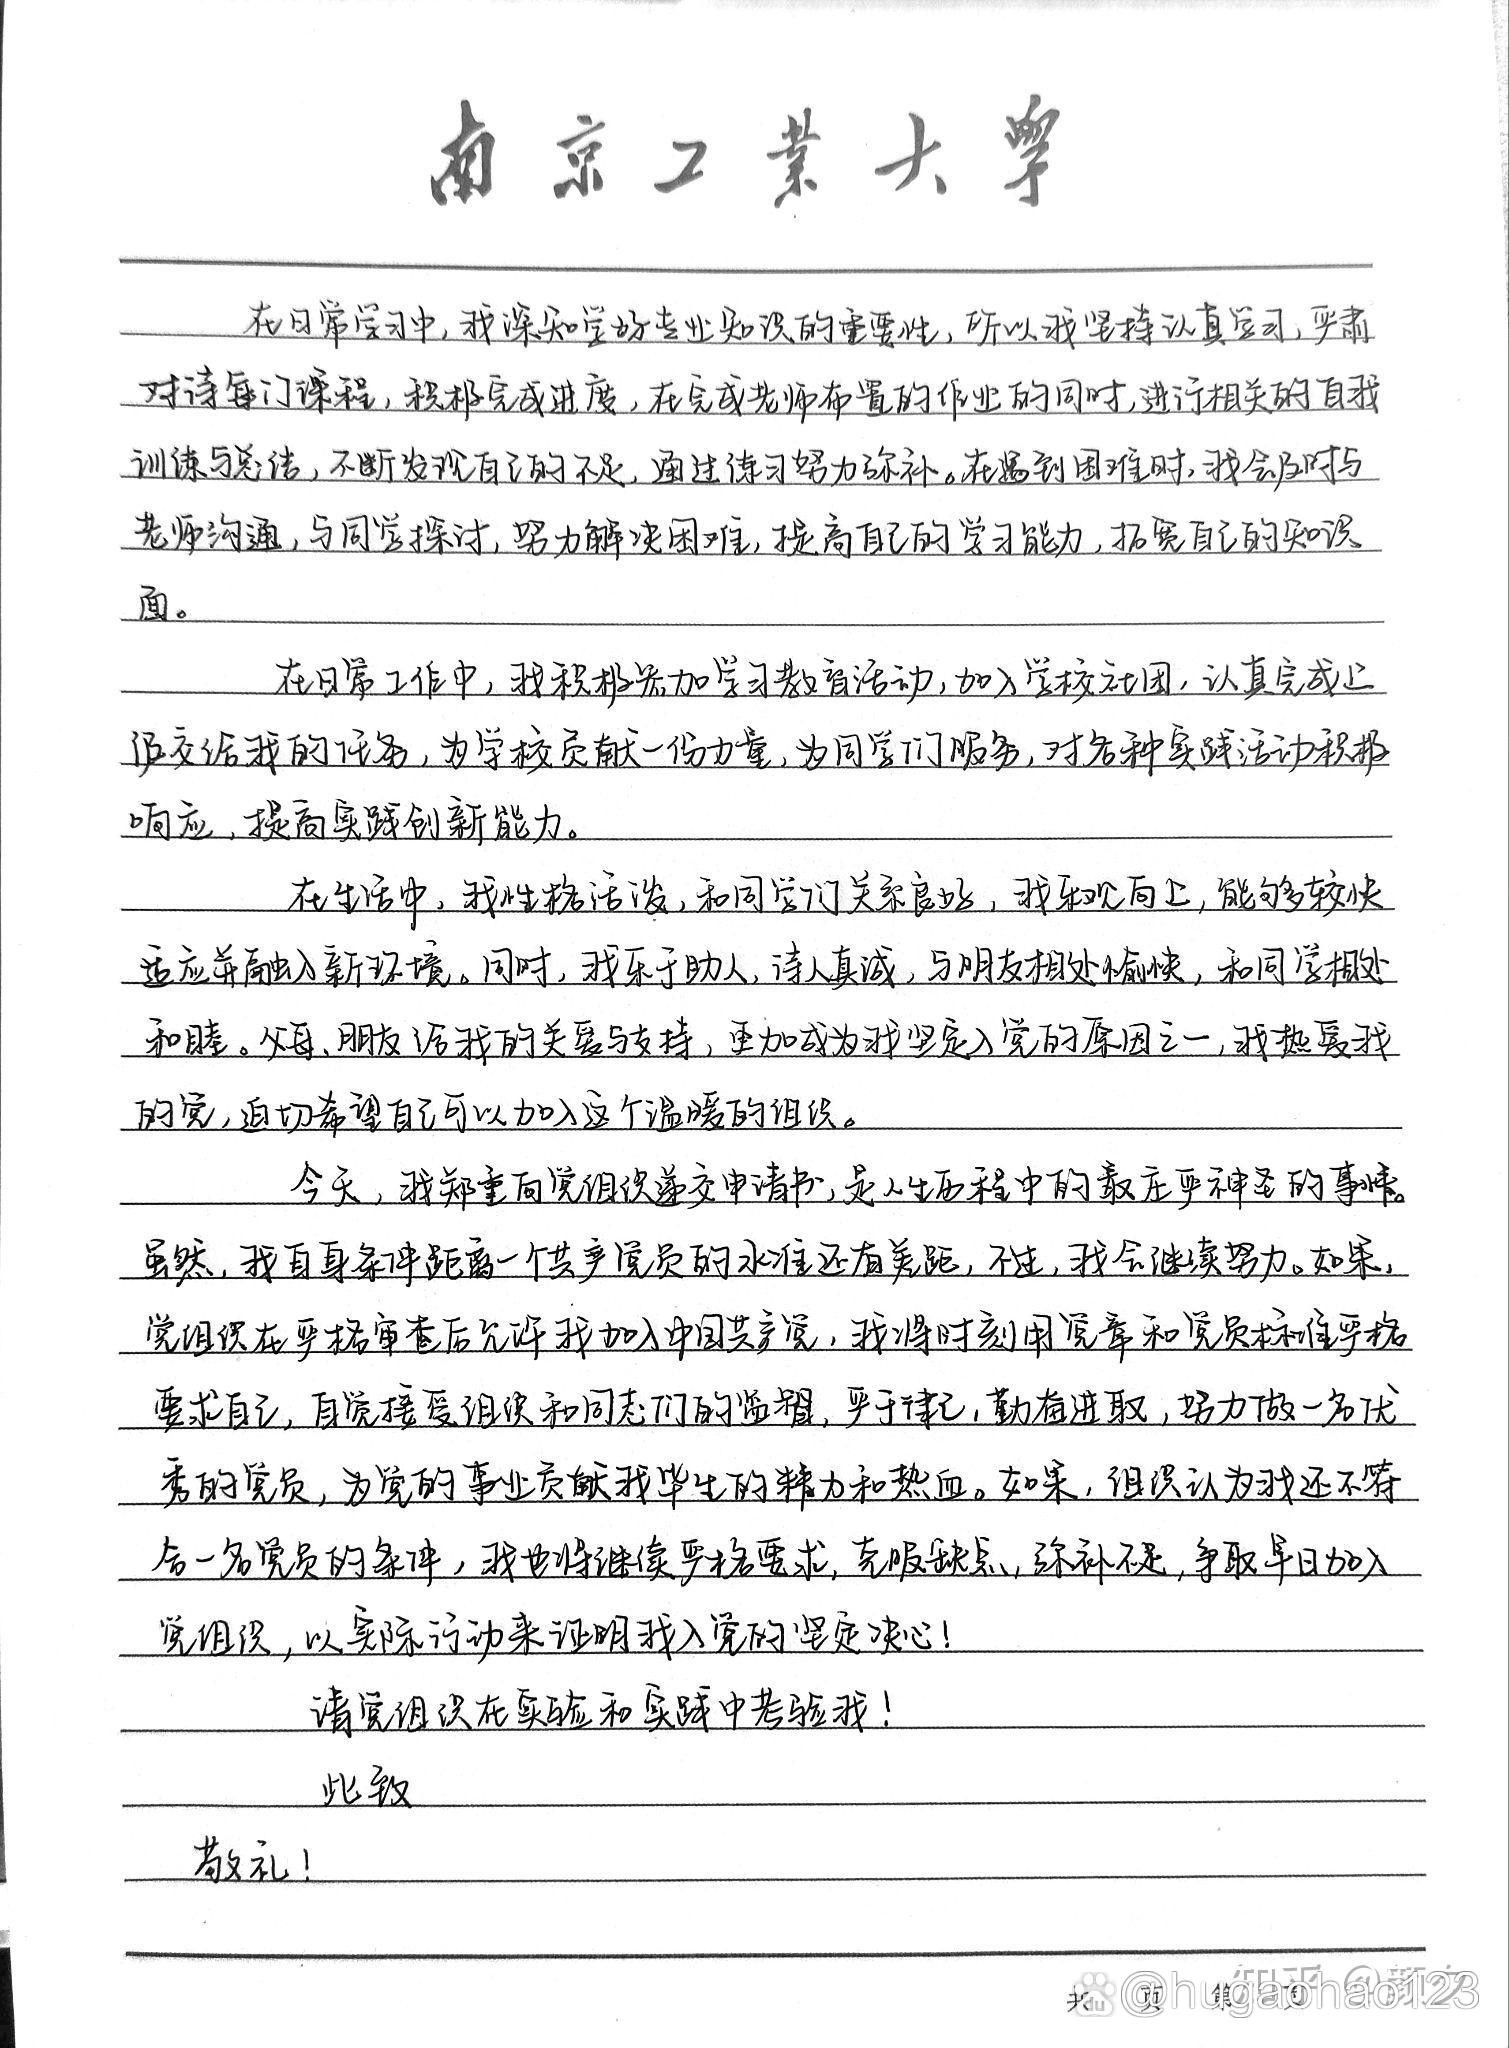 南京工业大学
在日常学习中，我深知学好专业知识的重要性，所以我坚持认真学习，严肃
对待每门课程，积极完成进度，在完成老师布置的作业的同时，进行相关的自我
训练与总结，不断发现自己的不足，通过练习努力弥补。在遇到困难时，我会及时与
老师沟通，与同学探讨，努力解决困难，提高自己的学习能力，拓宽自己的知识
面。
在日常工作中，我积极参加学习教育活动，加入学校社团，认真完成上
级交给我的任务，为学校贡献一份力量，为同学们服务，对各种实践活动积极
响应，提高实践创新能力。
在生活中，我性格活泼，和同学们关系良好，我乐观向上，能够较快
适应并融入新环境。同时，我乐于助人，待人真诚，与朋友相处愉快，和同学相处
和睦。父母、朋友给我的关爱与支持，更加成为我坚定入党的原因之一，我热爱我
的党，迫切希望自己可以加入这个温暖的组织。
今天，我郑重向党组织递交申请书，是人生历程中的最庄严神圣的事情。
虽然，我自身条件距离一个共产党员的水准还有差距，不过，我会继续努力。如果，
党组织在严格审查后允许我加入中国共产党，我将时刻用党章和党员标准严格
要求自己，自觉接受组织和同志们的监督，严于律己，勤奋进取，努力做一名优
秀的党员，为党的事业贡献我毕生的精力和热血。如果，组织认为我还不符
合一名党员的条件，我也将继续严格要求，克服缺点，弥补不足，争取早日加入
党组织，以实际行动来证明我入党的坚定决心！
请党组织在实验和实践中考验我！
此致
敬礼！
共 页 第 页
知乎 @颜夕
Bai du @hugaohao123